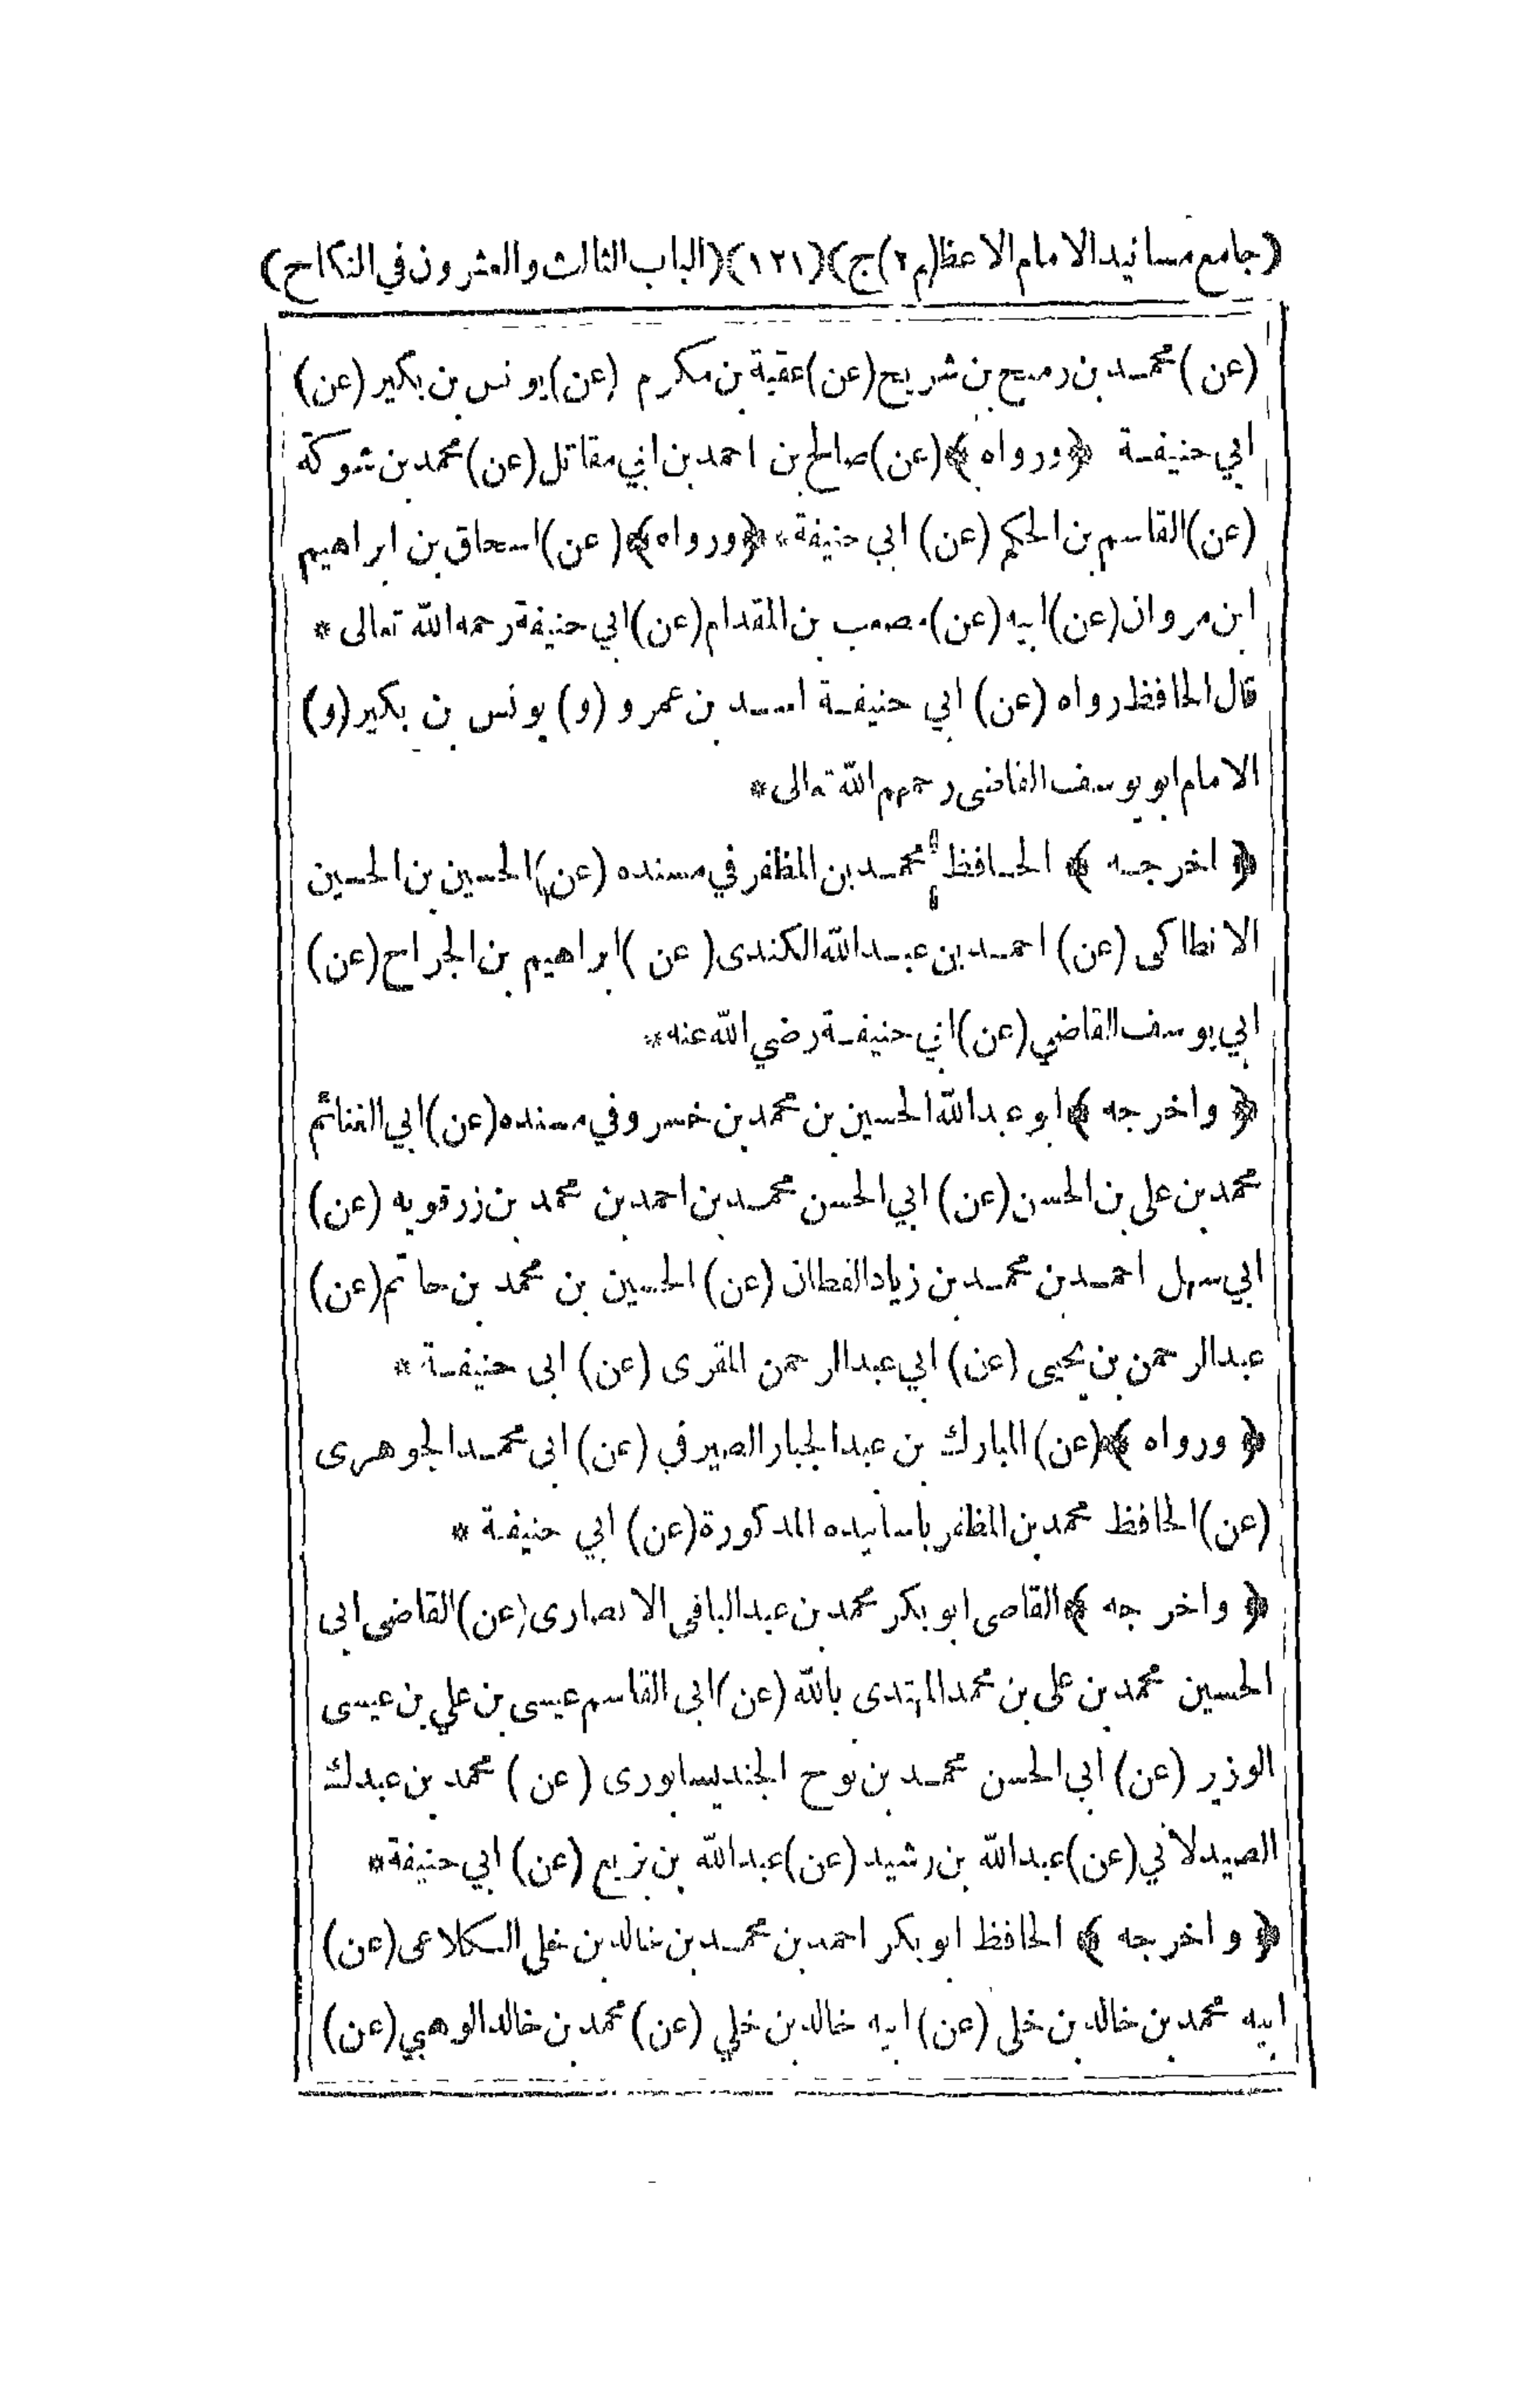 (جامع مسانيد الامام الاعظم)(ج٢)(١٢١)(الباب الثالث والعشرون في النكاح)
(عن) محمد بن رميح بن شريح (عن) عقبة بن مكرم (عن) يونس بن بكير (عن)
ابي حنيفة ﴿ورواه﴾ (عن) صالح بن احمد بن ابي مقاتل (عن) محمد بن شوكة
(عن) القاسم بن الحكم (عن) ابي حنيفة * ﴿ورواه﴾ (عن) اسحاق بن ابراهيم
ابن مروان (عن) ابيه (عن) مصعب بن المقدام (عن) ابي حنيفة رحمه الله تعالى *
قال الحافظ رواه (عن) ابي حنيفة اسد بن عمرو (و) يونس بن بكير (و)
الامام ابو يوسف القاضى رحمهم الله تعالى *
﴿اخرجه﴾ الحافظ محمد بن المظفر في مسنده (عن) الحسين بن الحسين
الانطاكى (عن) احمد بن عبد الله الكندى (عن) ابراهيم بن الجراح (عن)
ابي يوسف القاضي (عن) ابي حنيفة رضي الله عنه *
﴿واخرجه﴾ ابو عبد الله الحسين بن محمد بن خسرو في مسنده (عن) ابي الغنائم
محمد بن على بن الحسن (عن) ابي الحسن محمد بن احمد بن محمد بن زرقويه (عن)
ابي سهل احمد بن محمد بن زياد القطان (عن) الحسين بن محمد بن حاتم (عن)
عبد الرحمن بن يحيى (عن) ابي عبد الرحمن المقرى (عن) ابى حنيفة *
﴿ورواه﴾ (عن) المبارك بن عبد الجبار الصيرفي (عن) ابى محمد الجوهرى
(عن) الحافظ محمد بن المظفر باسانيده المذكورة (عن) ابي حنيفة *
﴿واخرجه﴾ القاضى ابو بكر محمد بن عبد الباقى الانصارى (عن) القاضى ابى
الحسين محمد بن على بن محمد المهتدى بالله (عن) ابى القاسم عيسى بن علي بن عيسى
الوزير (عن) ابى الحسن محمد بن نوح الجنديسابورى (عن) محمد بن عبدك
الصيدلاني (عن) عبد الله بن رشيد (عن) عبد الله بن بزيع (عن) ابي حنيفة *
﴿واخرجه﴾ الحافظ ابو بكر احمد بن محمد بن خالد بن خلى الكلاعى (عن)
ابيه محمد بن خالد بن خلى (عن) ابيه خالد بن خلي (عن) محمد بن خالد الوهبي (عن)